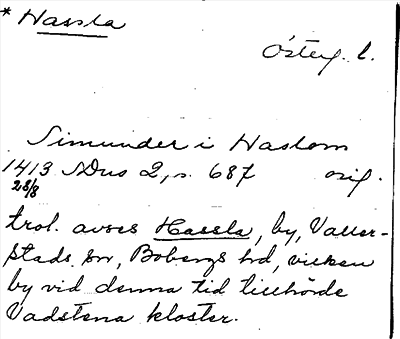 * Hassla
Österg. l.
Simunder i Haslom
1413 SDns 2, s. 687 orig.
28/8
trol. avses Hassla, by, Valler-
stads sn, Bobergs hd, vilken
by vid denna tid tillhörde
Vadstena kloster.